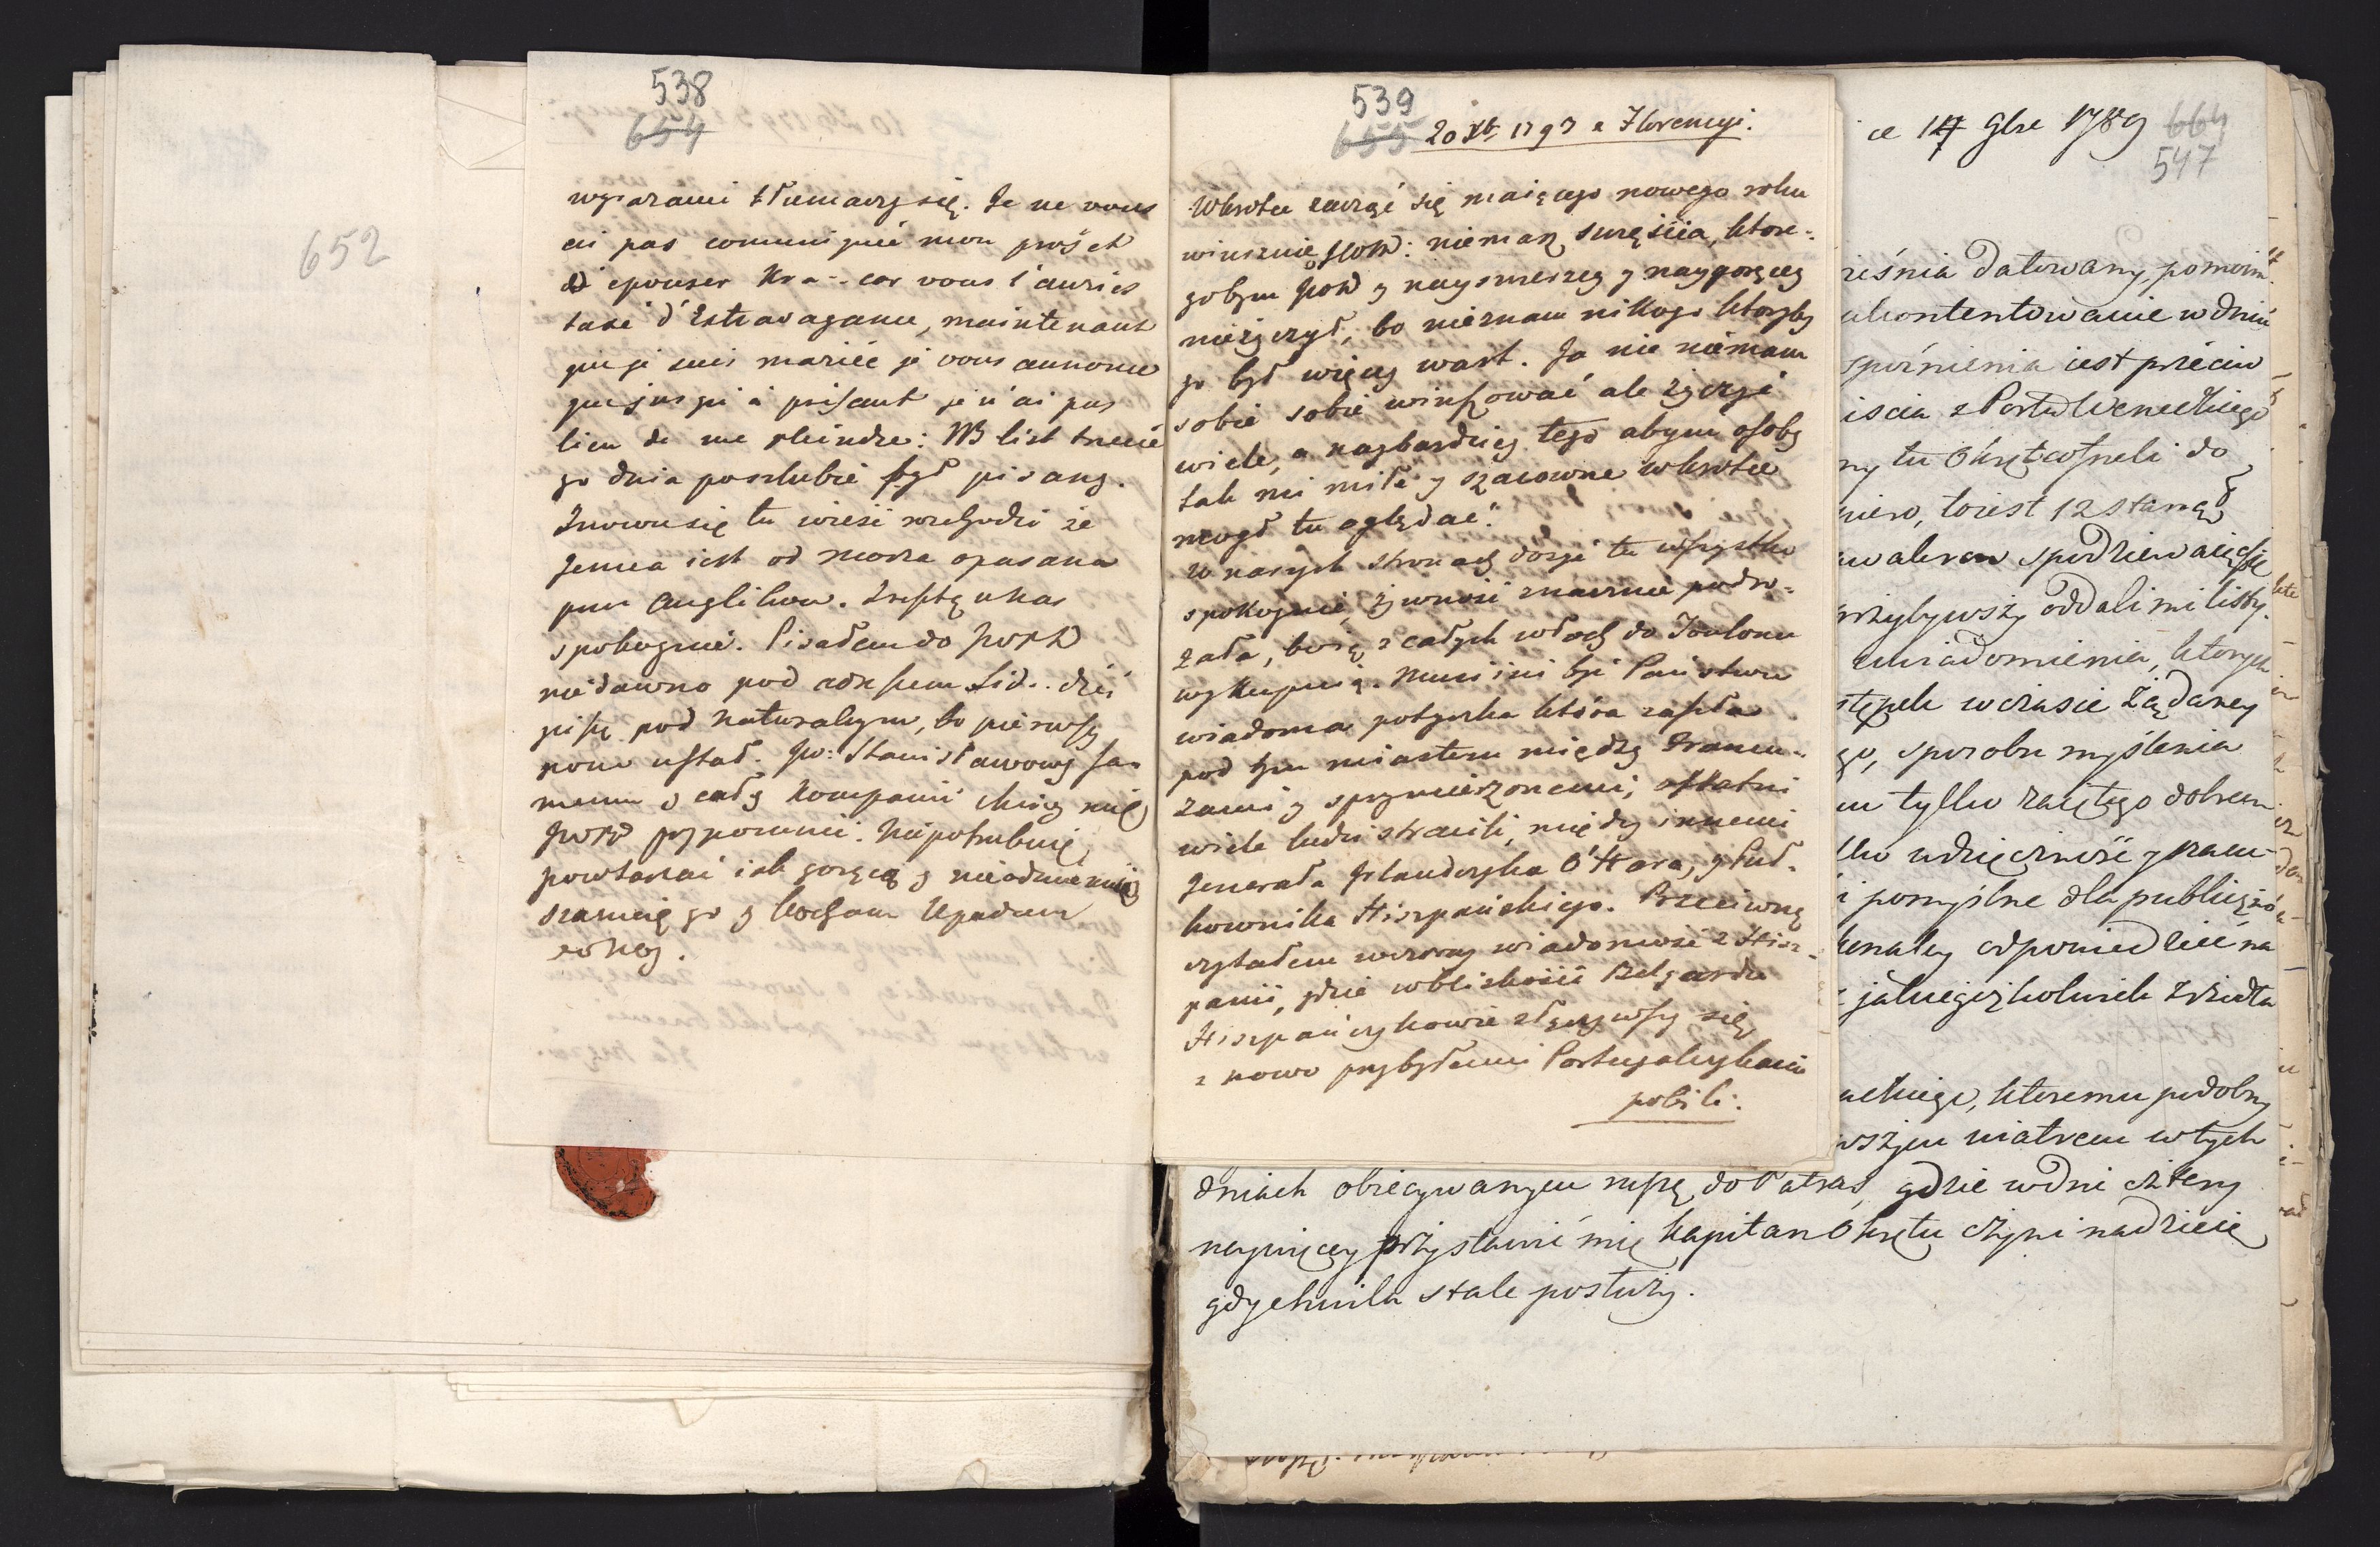 652
538
654
wyrazami tłumaczy się. Je ne vous
ai pas comuniqué mon projet
d'epouser Kra-- car vous l'auriés
taxé d'Extravagance, maintenant
que je suis mariée je vous annonce
que jusqu'à présant je n'ai pas
lieu de me plaindre: NB list trzecie
go dnia poszlubie był pisany.
Znowu się tu wieść rozchodzi że
Genua iest od morza opasana
przez Anglikow. Zresztą u nas
spokoynie. Pisałem do JWPK
niedawno pod adressem Lid.. dziś
piszę pod naturalnym, bo pierwszy
powod ustał. JW: Stanisławowy sa-
memu y całey kompanii chciey mię
JWPK przypomnieć. Niepotrzebuię
powtarzać iak gorąco y nieodmiennie
szanuię go y kocham Upadam
do nog.
539
655
20 Xb 1793 z Florencyi.
Wkrotce zacząć się maiącego nowego roku
winszuię JWPK: niemasz szczęścia, ktore-
gobym JPKW y nayszczerzey y naygoręcey
nieżyczył, bo nieznam nikogo ktoryby
go był więcey wart. Ja nie niemam
sobie sobie winszować ale życzyć
wiele, a naybardziey tego abym osoby
tak mi miłe y szacowne wkrotce
mogł tu oglądać.
W naszych stronach dosyć tu wszystko
spokoynie, żywność znacznie podro-
żała, bo ią z całych włoch do Toulonu
wykupuią. Musi iuż być Państwu
wiadoma potyczka która zaszła
pod tym miastem między Francu-
zami y sprzymierzonemi; ostatni
wiele ludzi stracili, między innemi
Generała Irlandczyka O'Hara, y Puł-
kownika Hiszpańskiego. Przeciwną
czytałem wczoray wiadomość z Hisz-
panii, gdzie wbliskości Belgardu
Hiszpańczykowie złączywszy się
z nowo przybyłemi Portugalczykami
pobili.
ce 14 9bre 1789 664
547
ześnia Datowany, pomoim
ukontentowanie w dniu
spóźnienia iest przeciw
iscia z Portu Weneckiego
ny tu Okręt do
niero, toiest 12
spodziewaiąc się
przybywszy oddali mi listy.
uwiadomienia, ktorych
wczasie Żądaney
go, sposobu myślenia
m tylko zaiętego dobrem
lko wdzięczność y szacu-
i pomyślne dla
odpowiedzieć na
z jakiegożkolwiek źrzódła
ackiego, ktoremu podobny
wszym wiatrem w tych
dniach obiecywanym ruszę do Patras, gdzie w dni cztery
naywięcey przystawić mię Kapitan Okrętu czyni nadzieię
gdy chwila stale posłuży.